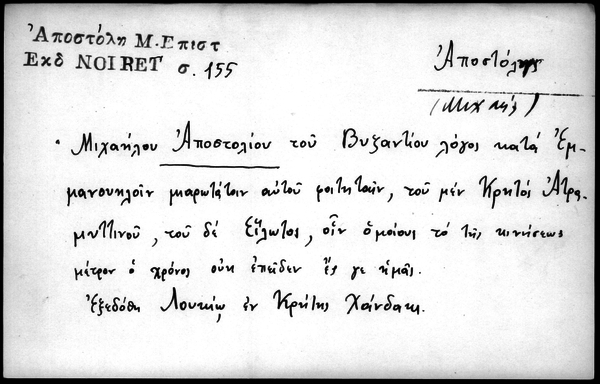 Ἀποστόλη Μ. Επιστ
Εκδ NOIRET σ. 155
Ἀποστόλης
(Μιχαήλ)
Μιχαήλου Ἀποστολίου τοῦ Βυζαντίου λόγος κατά Ἐμ-
μανουηλοῖν μιαρωτάτοιν αὐτοῦ φοιτηταῖν, τοῦ μέν Κρητός Ἀτρα-
μυττινοῦ, τοῦ δέ Εἵλωτος, οἷν ὁμοίους τό τῆς κινήσεως
μέτρον ὁ χρόνος οὐκ ἐπεῖδεν ἔς γε ἡμᾶς.
Ἐξεδόθη ἐν Κρήτης Χάνδακι.